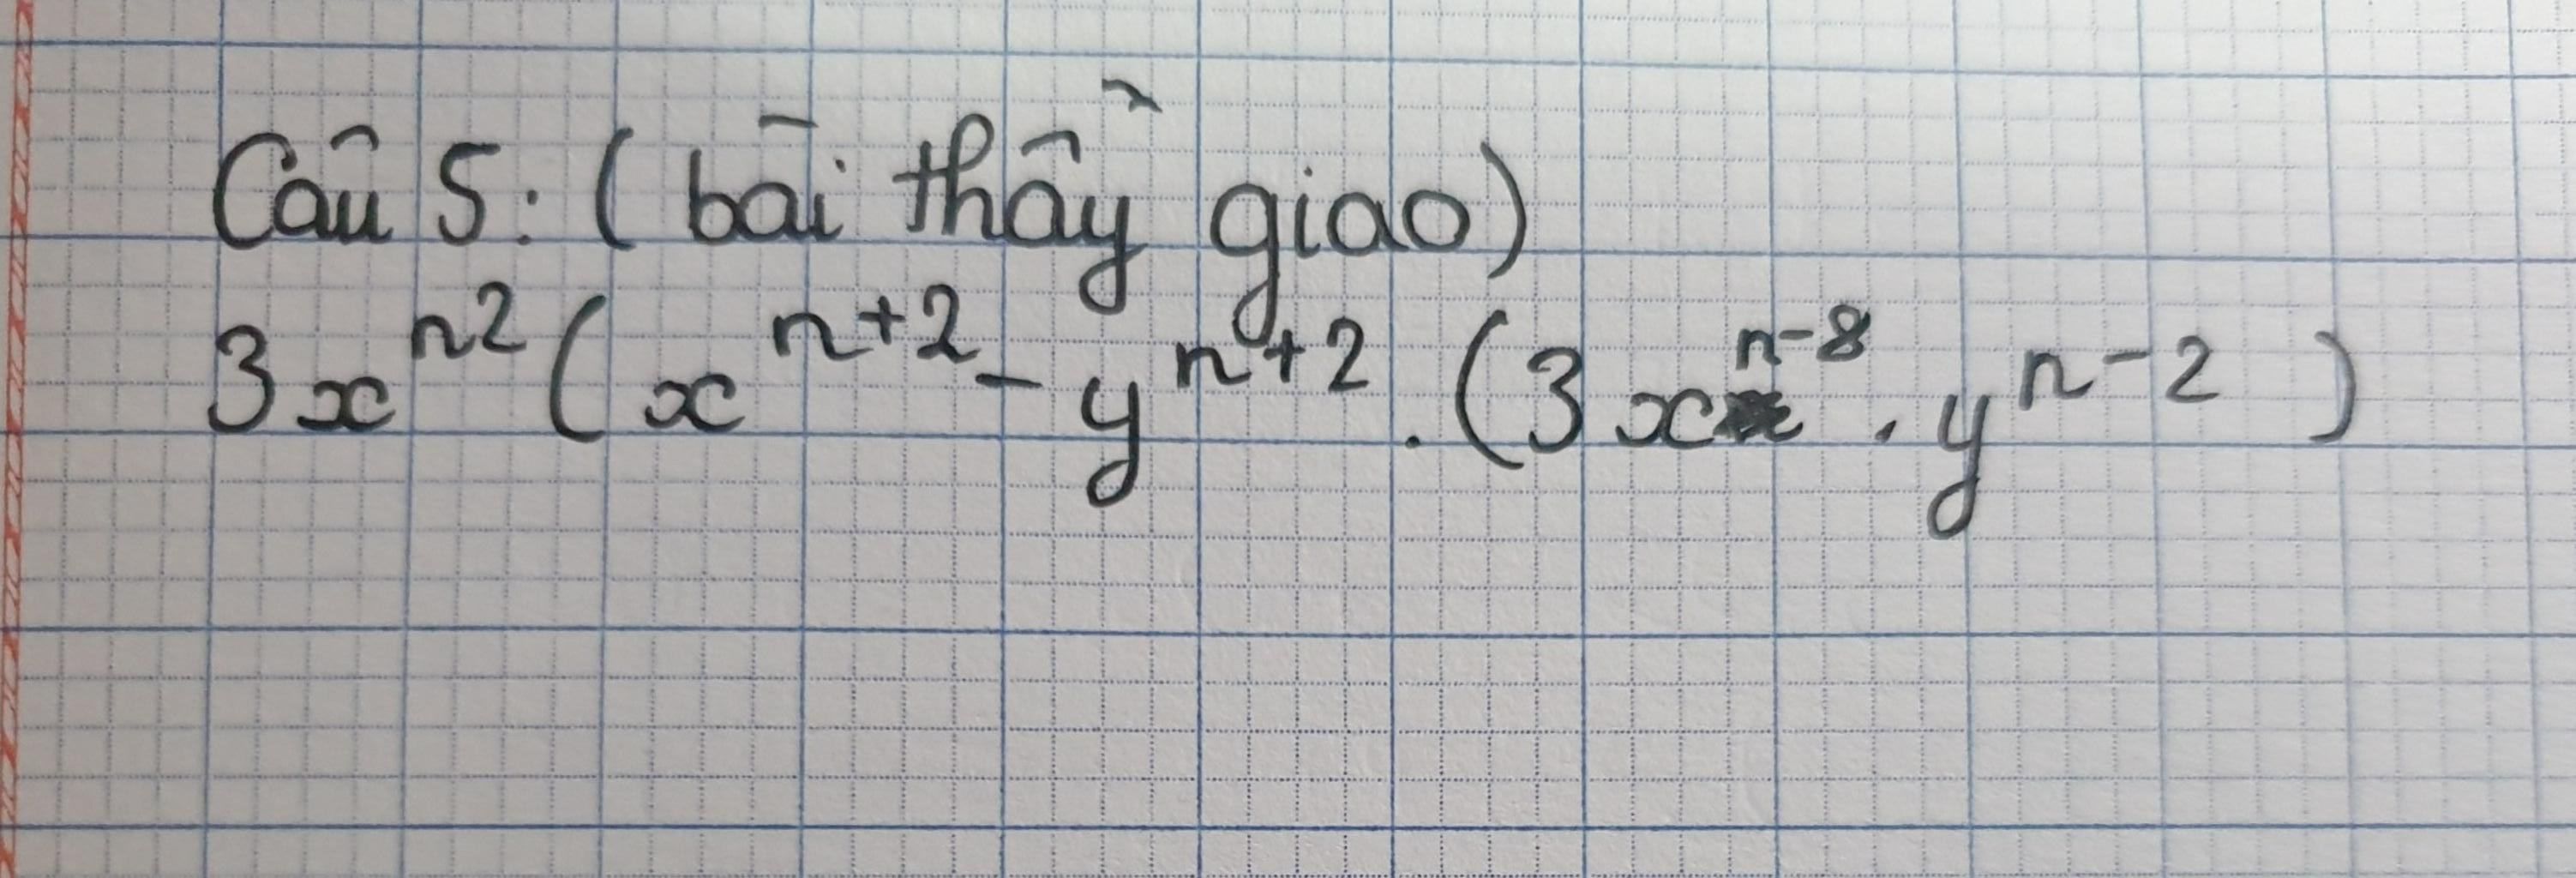 Câu 5: ( bài thầy giao)
3x^{n2}(x^{n+2} - y^{n+2} . (3x^{n-8} . y^{n-2})